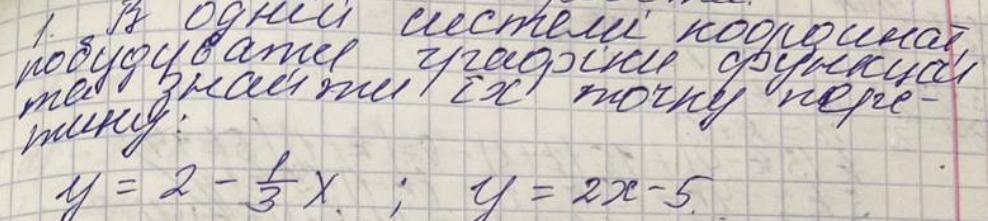 1. В одній системі координат
побудувати графіки функцій
та знайти їх точку пере-
тину:
y = 2 - 1/3 x ; y = 2x - 5